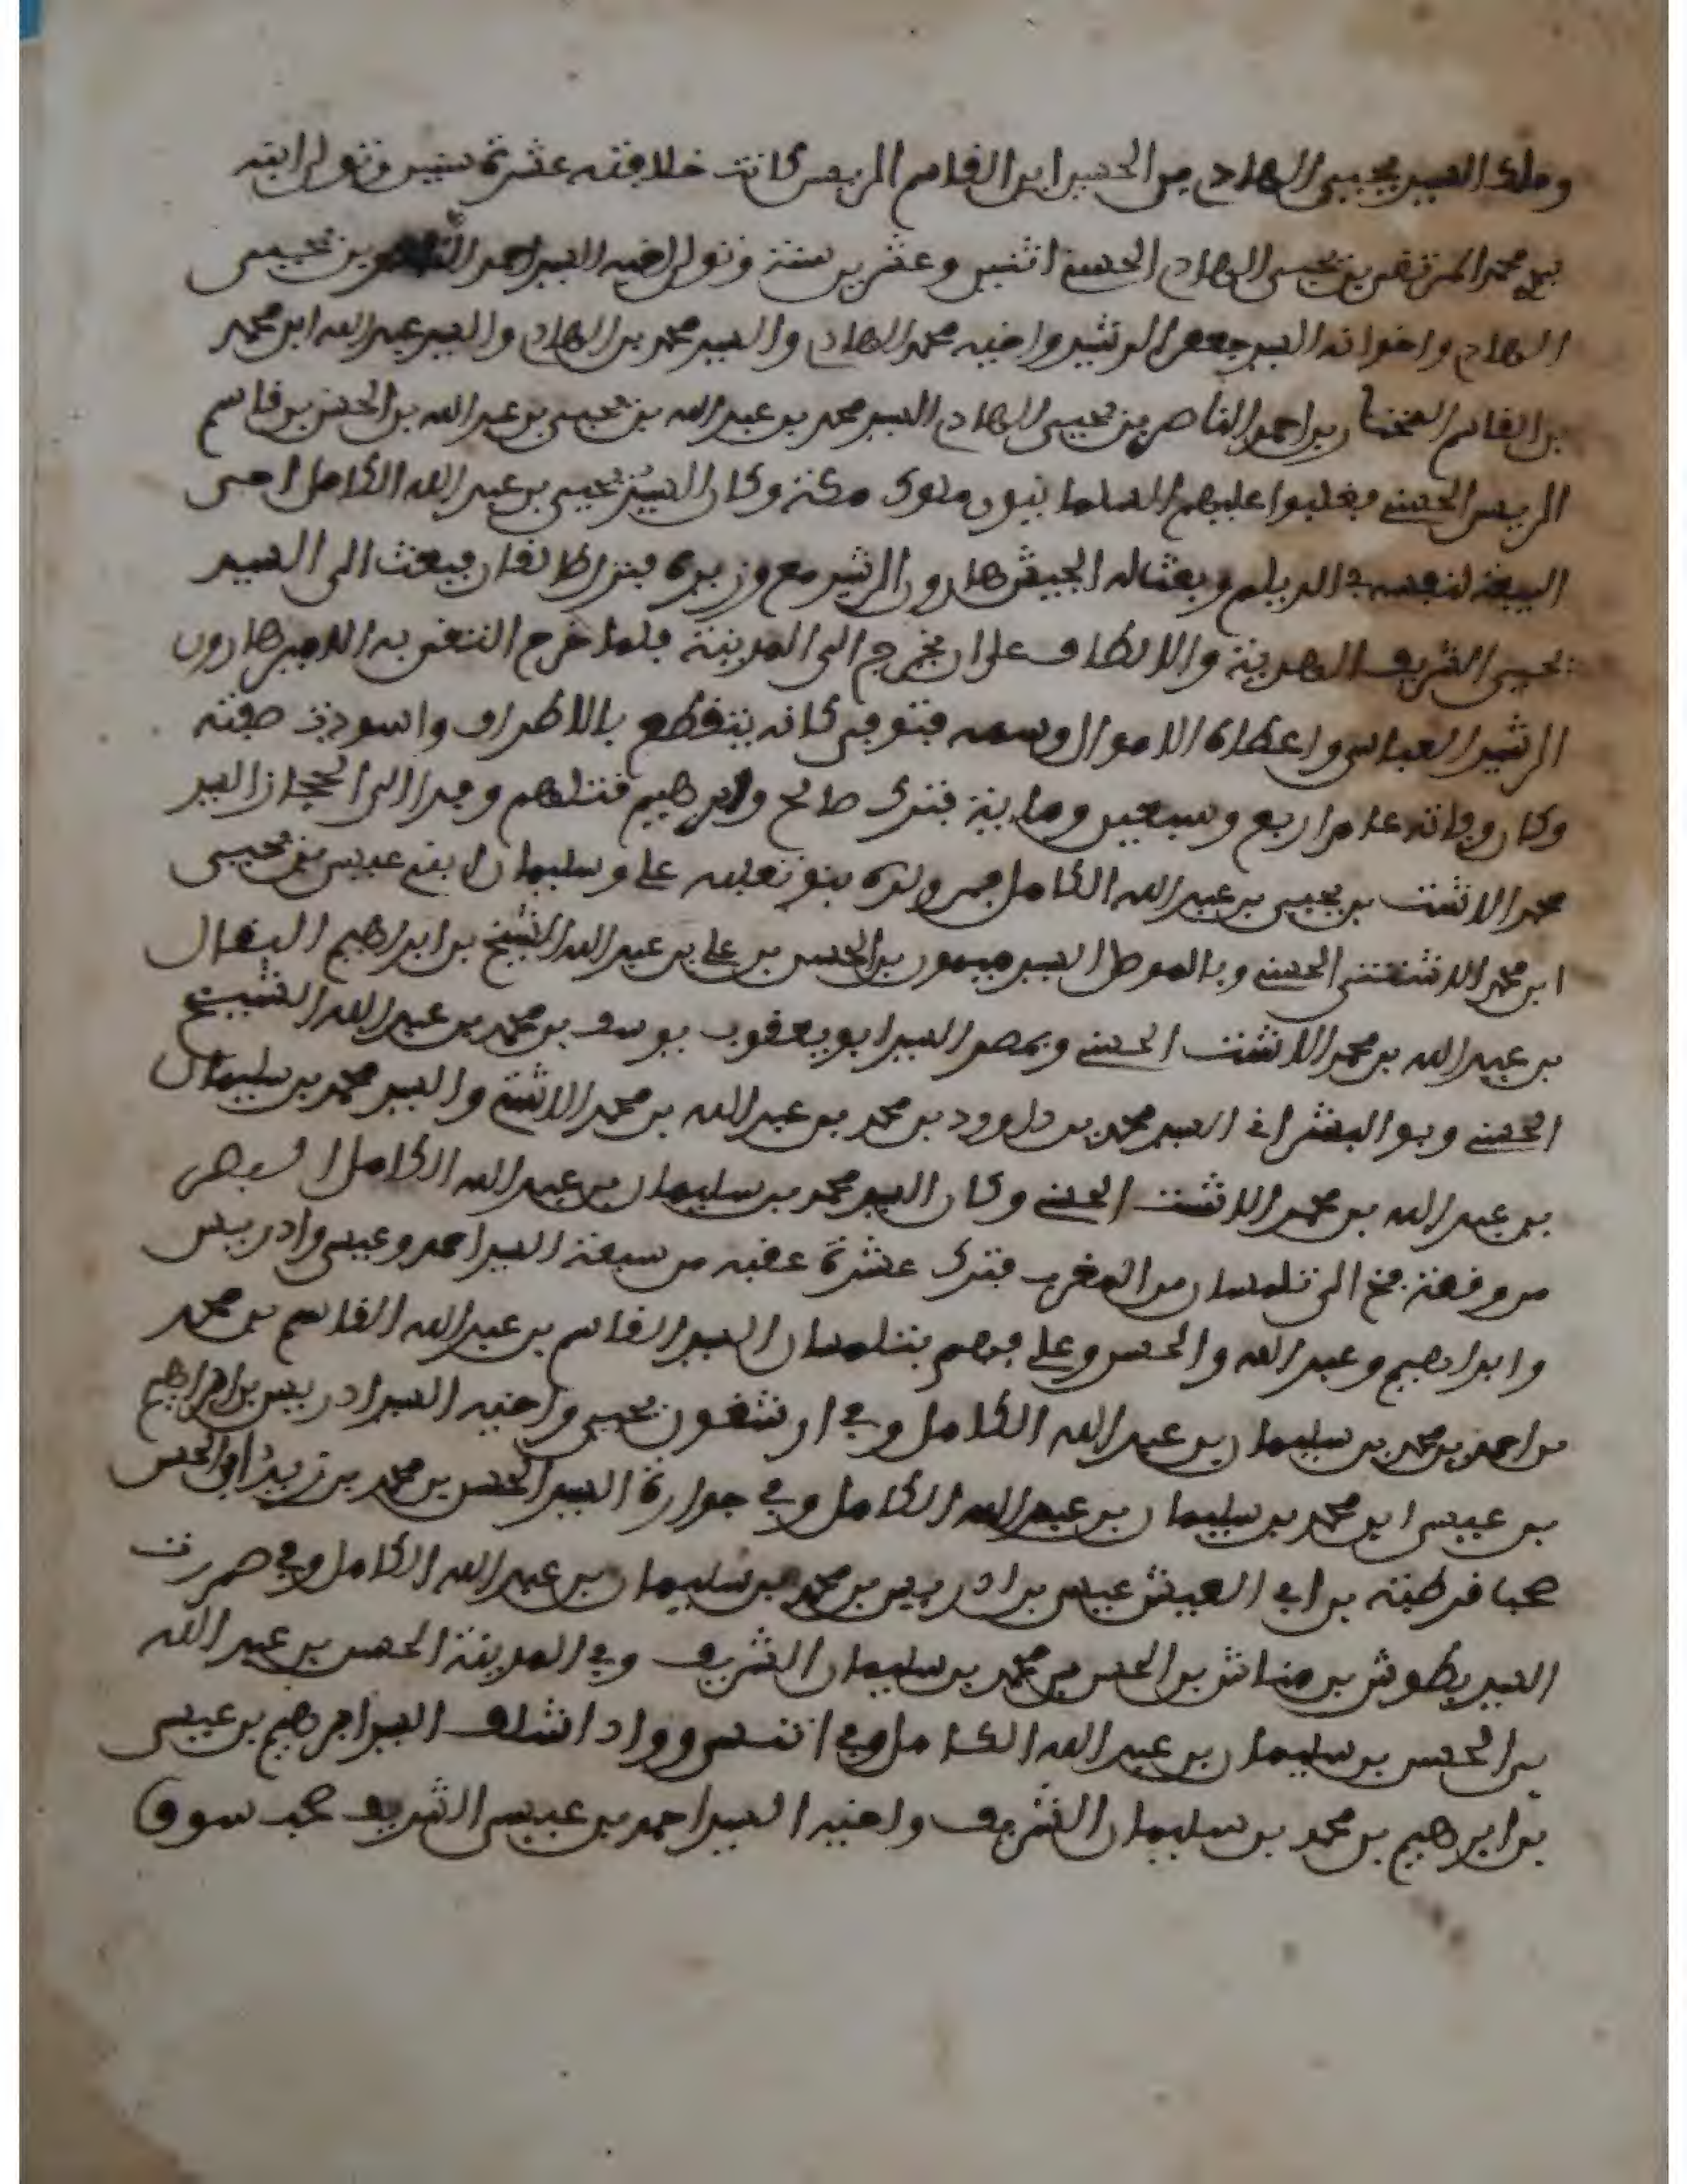 وملك السيد يحيى الهاد بن الحسين ابن القاسم الريس كانت خلافته عشرة سنين وتولى ابنه
محمد المرتضى بن يحيى الهاد الحسني اثنين وعشرين سنة وتولى اخيه السيد احمد الناصر بن يحيى
الهاد واخوانه السيد جعفر الرشيد واخيه محمد الهاد والسيد محمد بن الهاد والسيد عبد الله ابن محمد
بن القاسم المختار بن احمد الناصر بن يحيى الهاد السيد محمد بن عبد الله بن يحيى بن عبد الله بن الحسن بن قاسم
الريس الحسني فغلبوا عليهم السلمانيون ملوك مكة وكان السيد يحيى بن عبد الله الكامل
البيعة لنفسه في الديلم وبعث له الجيش هارون الرشيد مع وزيره فنزل فبعث الى السيد
يحيى الشريف الهدية والالطاف على ان يخرج الى المدينة فلما خرج التقى به الامير هارون
الرشيد العباسي واعطاه الاموال وسمه فتوفى كانه يتقطع بالاطراف واسودت
وكان وفاته عام اربع وسبعين وماية فترك صالح وابرهيم قتلهم وفر الى الحجاز السيد
محمد الاشتت بن يحيى بن عبد الله الكامل ولده بنو علي وسليمان ابني عيسى بن يحيى
ابن محمد الاشتتي الحسني وبالموصل السيد ميمون بن الحسن بن علي بن عبد الله الشيخ بن ابراهيم البقال
بن عبد الله بن محمد الاشتت الحسني وبمصر السيد ابو يعقوب يوسف بن محمد بن عبد الله الشيخ
الحسني وبو السيد محمد بن داوود بن محمد بن عبد الله بن محمد الاشتت والسيد محمد بن سليمان
بن عبد الله بن محمد الاشتت الحسني وكان السيد محمد بن سليمان بن عبد الله الكامل
من وقعة فخ الى تلمسان من المغرب فترك عشرة عقبه من سبعة السيد احمد وعيسى وادريس
وابراهيم وعبد الله والحسن وعلي فمنهم بتلمسان السيد القاسم بن عبد الله القاسم بن محمد
بن احمد بن محمد بن سليمان بن عبد الله الكامل وفي ارشغون يحيى واخيه السيد ادريس بن ابراهيم
بن عيسى ابن محمد بن سليمان بن عبد الله الكامل وفي جوارة السيد الحسن بن محمد بن زيد ابو الحسن
قرطبة بن ابي العيش عيسى بن ادريس بن محمد بن سليمان بن عبد الله الكامل وفي
السيد بطوش بن حناتش بن الحسن بن محمد بن سليمان الشريف وفي المدينة الحسن بن عبد الله
بن الحسن بن سليمان بن عبد الله الكامل وفي اتنس وواد اشلف السيد ابرهيم بن عيسى
بن ابرهيم بن محمد بن سليمان الشريف واخيه السيد احمد بن عيسى الشريف سوق